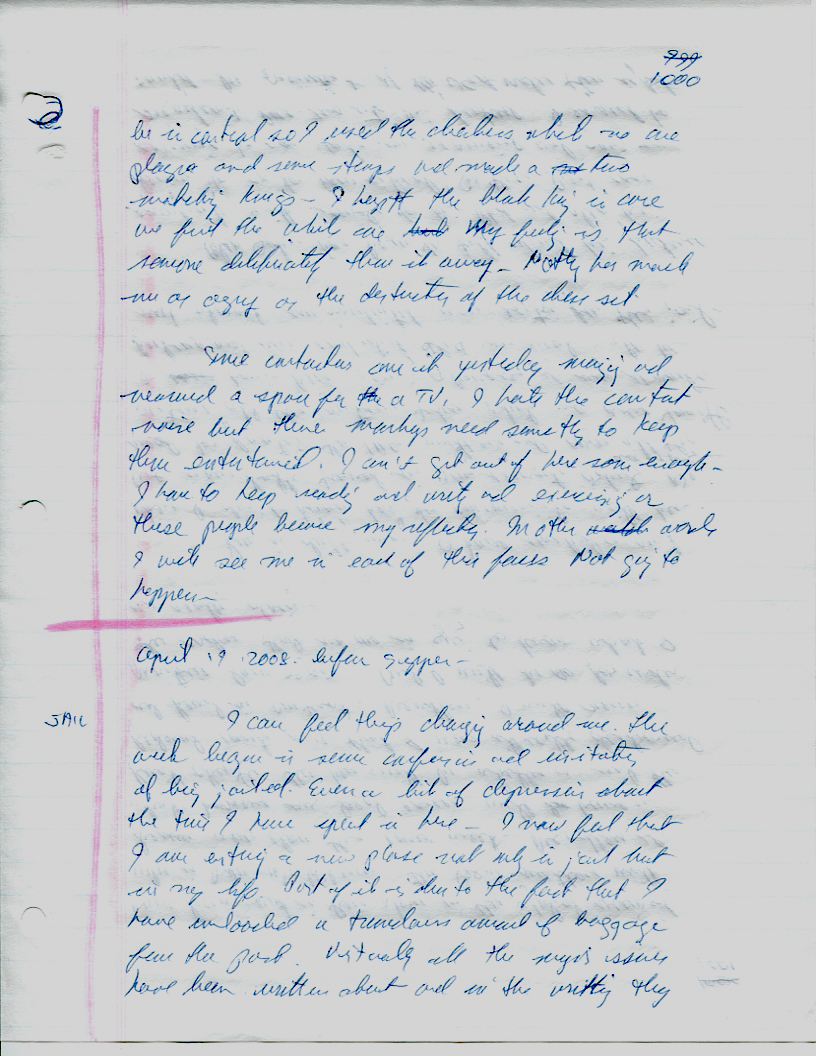 999
1000
be in control so I used the checkers which no one
plays and some strings and made a two
makeshift kings - I kept the black king in case
we find the white one My feeling is that
someone deliberately threw it away - Nothing has made
me as angry as the destruction of the chess set
Some contractors came in yesterday measuring and
measured a space for the a TV. I hate the constant
noise but these monkeys need something to keep
them entertained. I can't get out of here soon enough -
I have to keep reading and writing and exercising or
these people become my reflection. In other words
I will see me in each of their faces Not going to
happen -
April 19 2008. before supper -
JAIL
I can feel things changing around me. The
week began in some confusion and irritation
of being jailed. Even a bit of depression about
the time I have spent in here - I now feel that
I am entering a new phase not only in jail but
in my life. Part of it is due to the fact that I
have unloaded a tremendous amount of baggage
from the past. Virtually all the major issues
have been written about and in the writing they